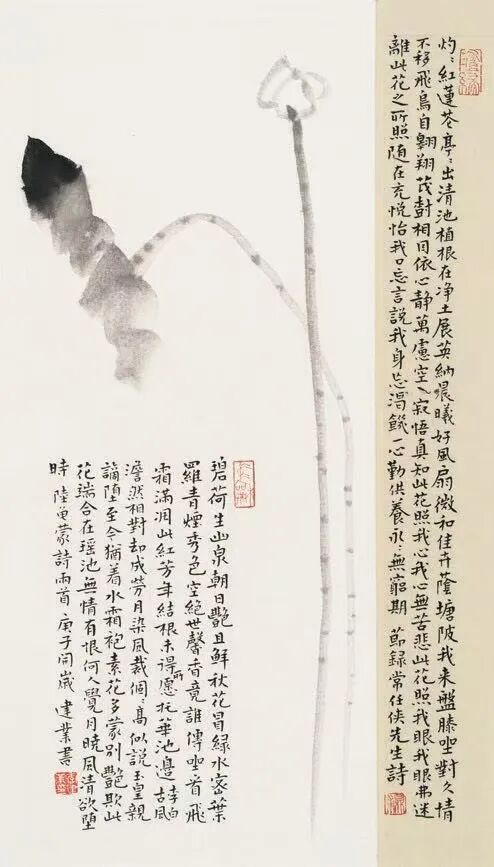 灼〻紅蓮花亭〻出清池植根在净土展英納晨曦好風扇微和佳卉蔭塘陂我来盤膝坐對久情
不移飛鳥自翱翔茂樹相因依心静萬慮空〻寂悟真知此花照我心我心無苦悲此花照我眼我眼弗迷
離此花之所照随在充悦怡我口忘言説我身忘渴饑一心勤供養永〻無窮期 節録常任侠先生詩
碧荷生幽泉朝日艷且鮮秋花冒緑水密葉
羅青煙秀色空絶世馨香竟誰傳坐看飛
霜滿凋此紅芳年結根未得所願托華池邊 李白古風
澹然相對却成勞月染風裁個〻高似説玉皇親
謫墮至今猶着水霜袍素花多蒙别艷欺此
花瑞合在瑶池無情有恨何人覺月曉風清欲墮
時 陸龜蒙詩兩首 庚子開歲 建業書